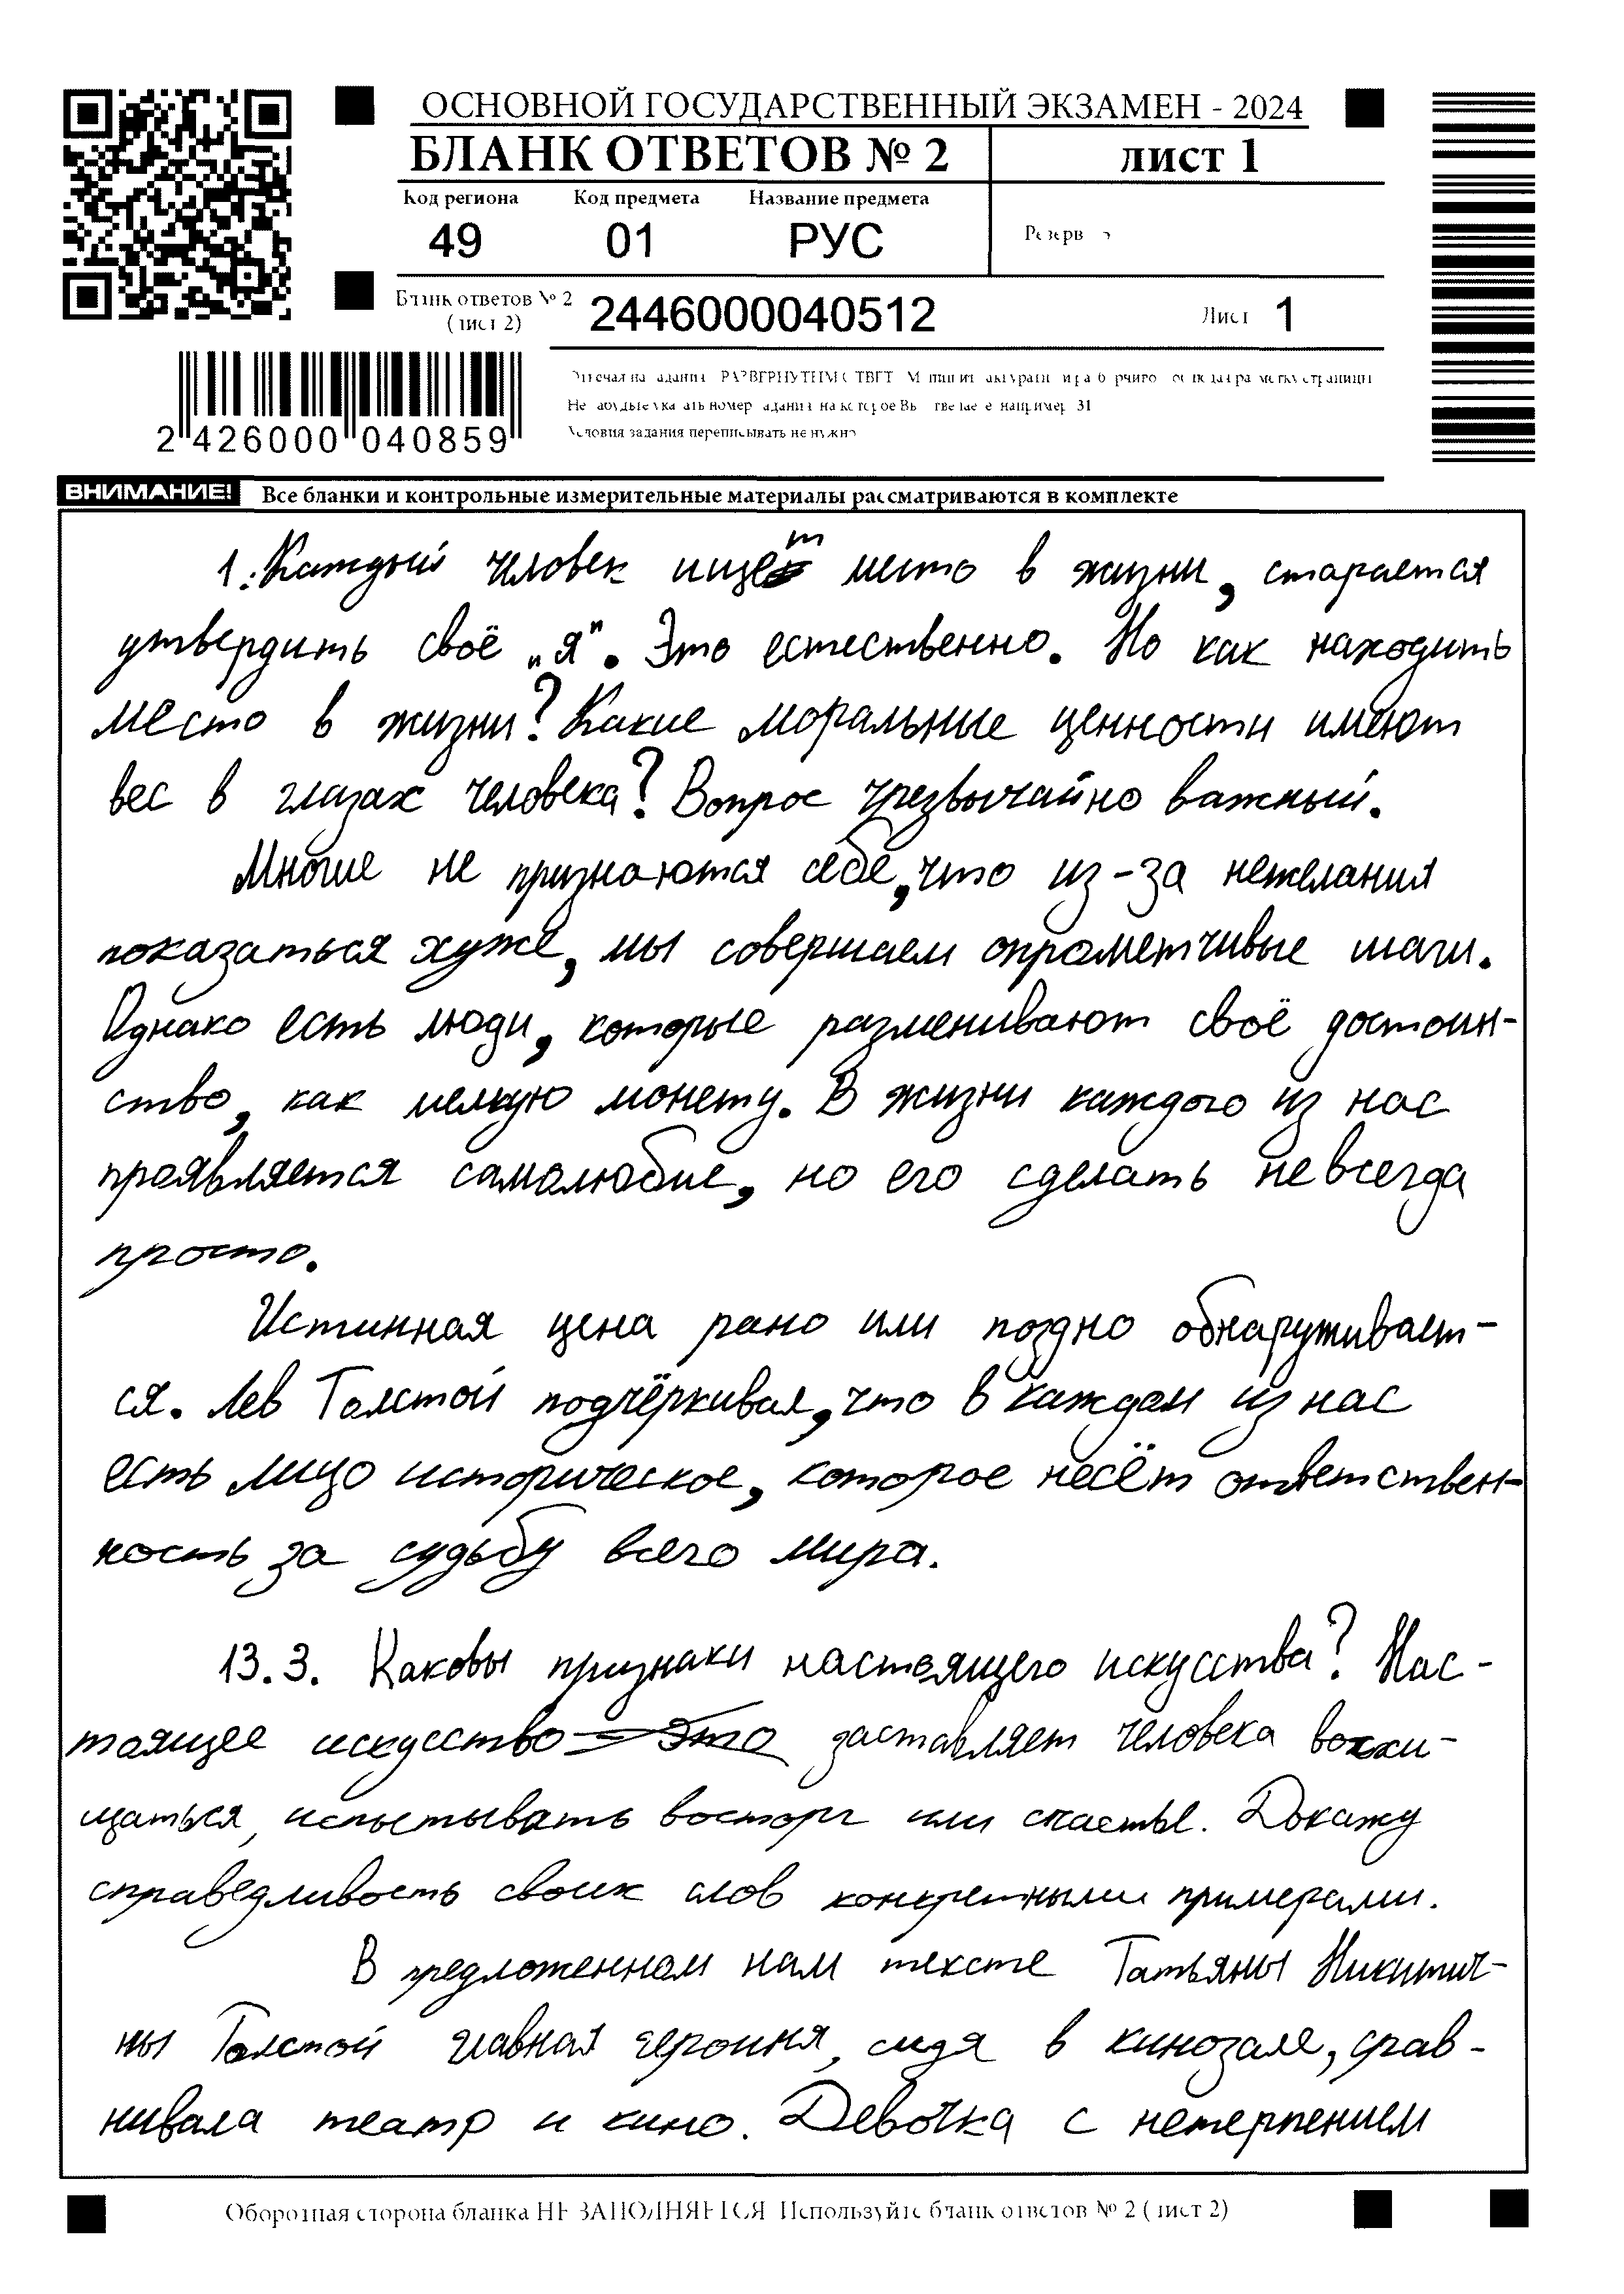 ОСНОВНОЙ ГОСУДАРСТВЕННЫЙ ЭКЗАМЕН - 2024
БЛАНК ОТВЕТОВ № 2
ЛИСТ 1
Код региона Код предмета Название предмета
49 01 РУС
Резерв
Бланк ответов № 2
(лист 2)
2446000040512
Лист 1
2 426000 040859
Условия задания переписывать не нужно
ВНИМАНИЕ! Все бланки и контрольные измерительные материалы рассматриваются в комплекте
1. Каждый человек ищет место в жизни, старается
утвердить своё „я". Это естественно. Но как находить
место в жизни? Какие моральные ценности имеют
вес в глазах человека? Вопрос чрезвычайно важный.
Многие не признаются себе, что из-за нежелания
показаться хуже, мы совершаем опрометчивые шаги.
Однако есть люди, которые разменивают своё достоин-
ство, как мелкую монету. В жизни каждого из нас
проявляется самолюбие, но его сделать не всегда
просто.
Истинная цена рано или поздно обнаруживает-
ся. Лев Толстой подчёркивал, что в каждом из нас
есть лицо историческое, которое несёт ответствен-
ность за судьбу всего мира.
13.3. Каковы признаки настоящего искусства? Нас-
тоящее искусство заставляет человека восхи-
щаться, испытывать восторг или счастье. Докажу
справедливость своих слов конкретными примерами.
В предложенном нам тексте Татьяны Никитич-
ны Толстой главная героиня, сидя в кинозале, срав-
нивала театр и кино. Девочка с нетерпением
Оборотная сторона бланка НЕ ЗАПОЛНЯЕТСЯ. Используйте бланк ответов № 2 (лист 2)